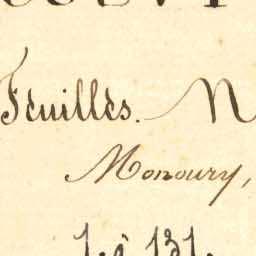 Feuilles. N
Monoury,
1. à 131.